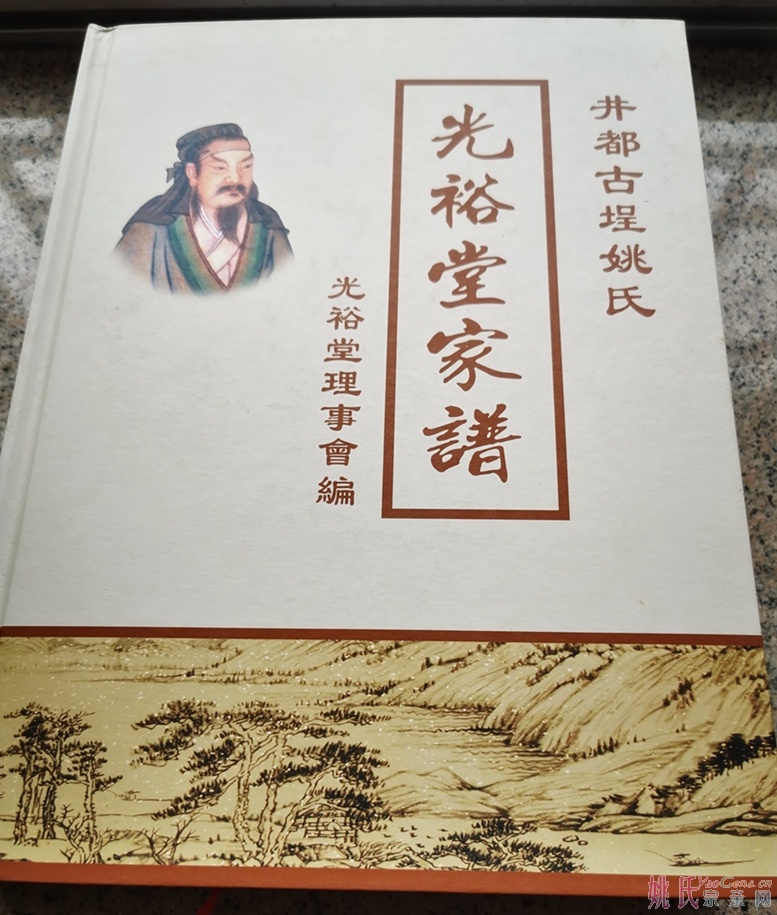 井都古埕姚氏
光裕堂家譜
光裕堂理事會編
姚氏宗亲网
YaoGens.cn